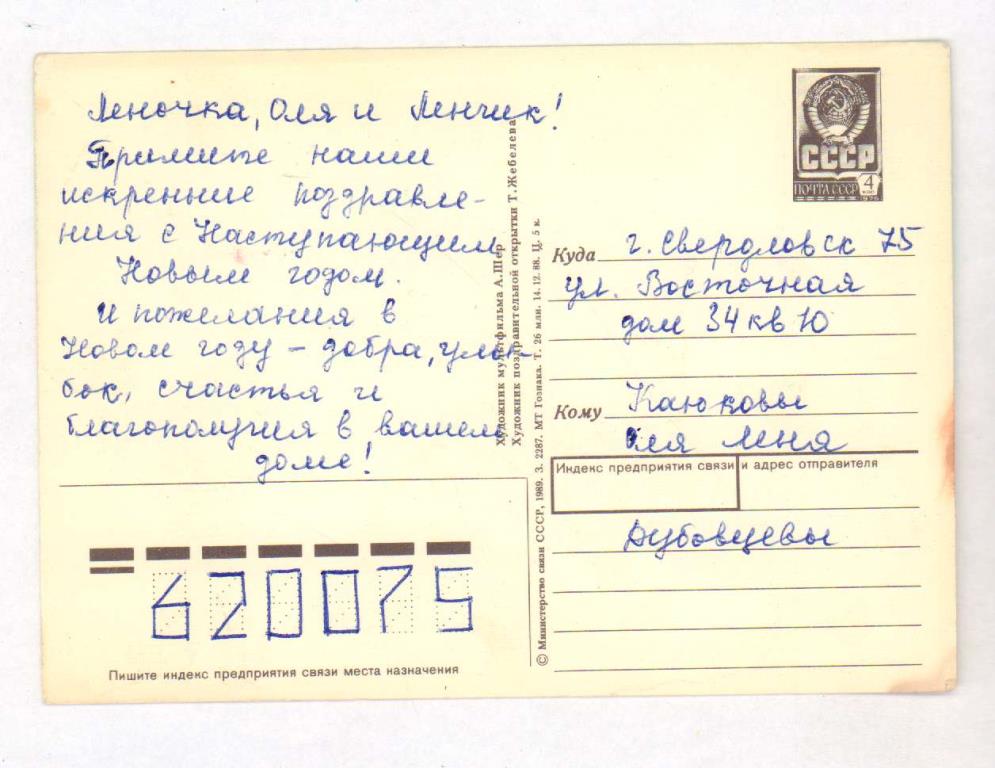 Леночка, Оля и Ленчик!
Примите наши
искренние поздравле-
ния с Наступающим
Новым годом.
И пожелания в
Новом году – добра, улы-
бок, счастья и
благополучия в вашем
доме!
620075
Пишите индекс предприятия связи места назначения
Художник мультфильма А. Шер
Художник поздравительной открытки Т. Жебелева
© Министерство связи СССР, 1989. З. 2287. МТ Гознака. Т. 26 млн. 14.12.88. Ц. 5 к.
СССР
ПОЧТА СССР 4
Куда г. Свердловск 75
ул. Восточная
дом 34 кв 10
Кому Каюковы
Оля Леня
Индекс предприятия связи и адрес отправителя
Дубовцевы